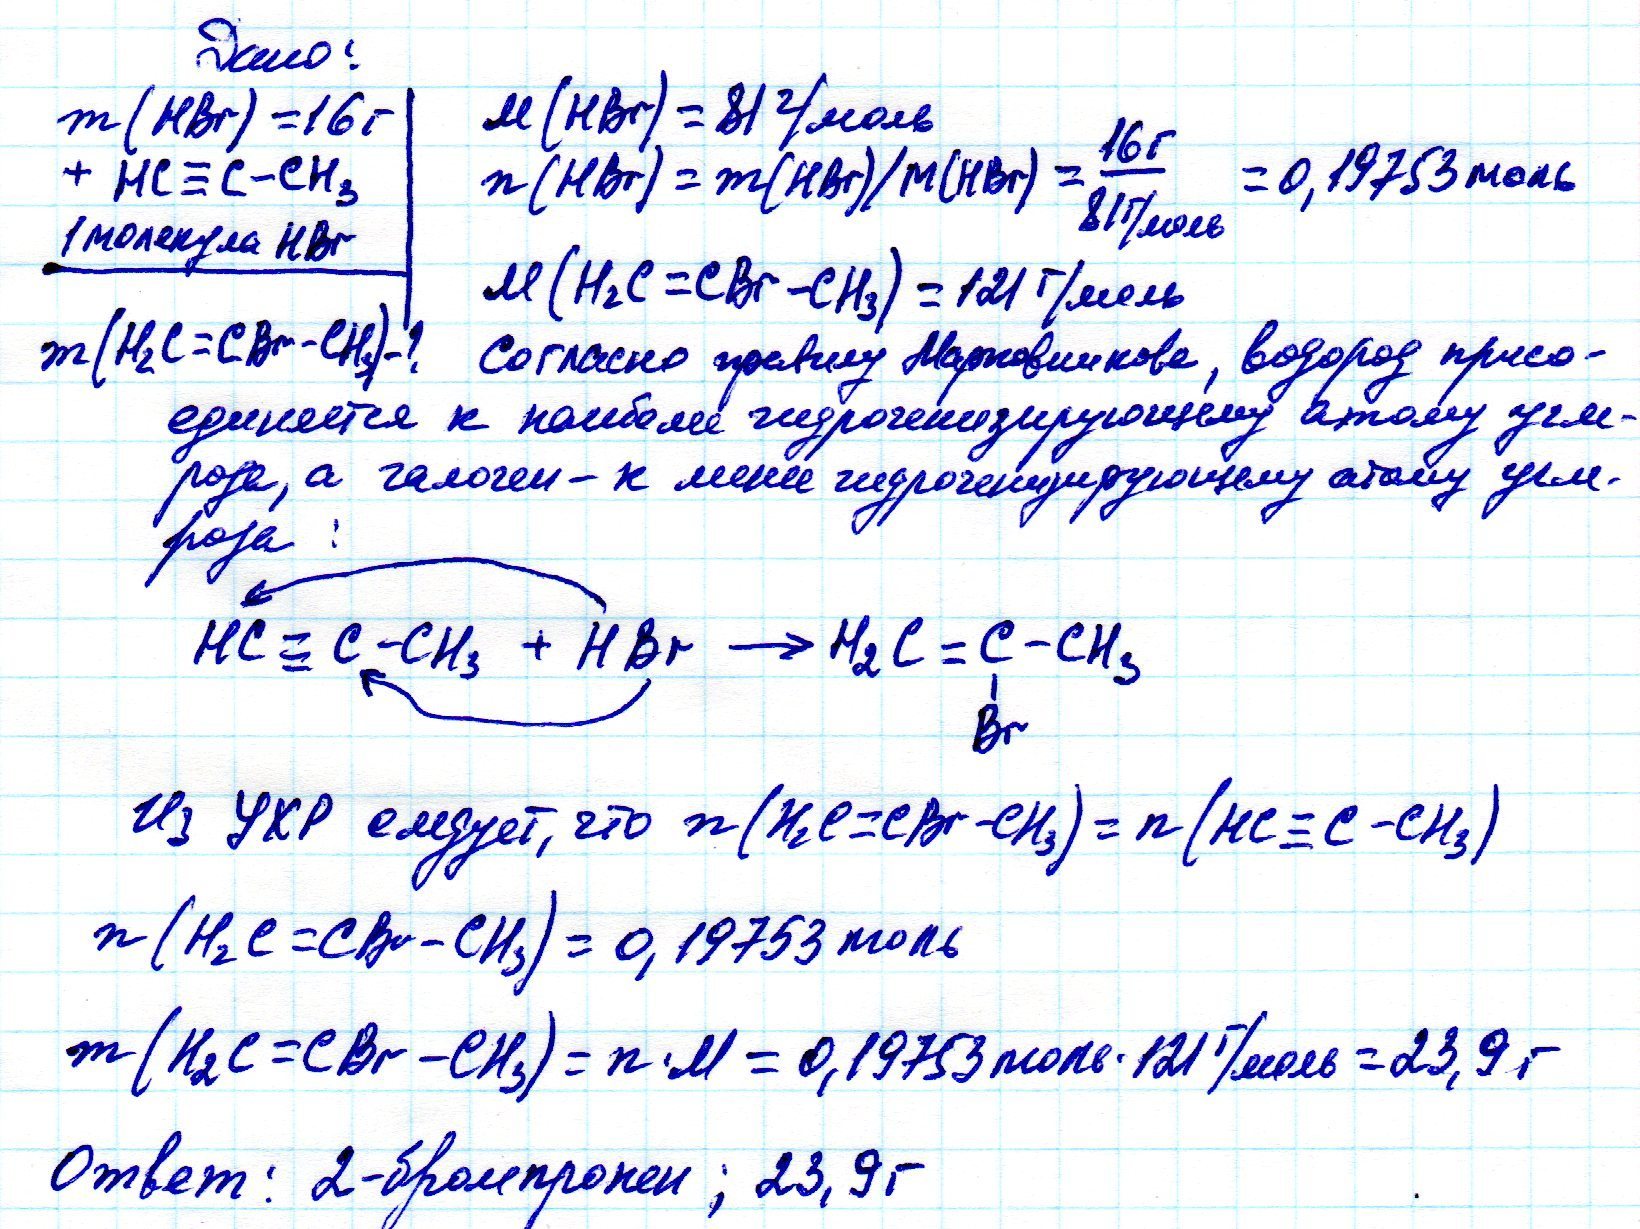 Дано:
m(HBr) = 16г
+ HC≡C-CH₃
1 молекула HBr
m(H₂C=CBr-CH₃)-?
M(HBr) = 81 г/моль
n(HBr) = m(HBr)/M(HBr) = 16г/81г/моль = 0,19753 моль
M(H₂C=CBr-CH₃) = 121 г/моль
Согласно правилу Марковникова, водород присо-
единяется к наиболее гидрогенизирующему атому угле-
рода, а галоген - к менее гидрогенизирующему атому угле-
рода:
HC≡C-CH₃ + HBr → H₂C=C-CH₃
Br
Из УХР следует, что n(H₂C=CBr-CH₃) = n(HC≡C-CH₃)
n(H₂C=CBr-CH₃) = 0,19753 моль
m(H₂C=CBr-CH₃) = n·M = 0,19753 моль·121 г/моль = 23,9 г
Ответ: 2-бромпропен; 23,9 г